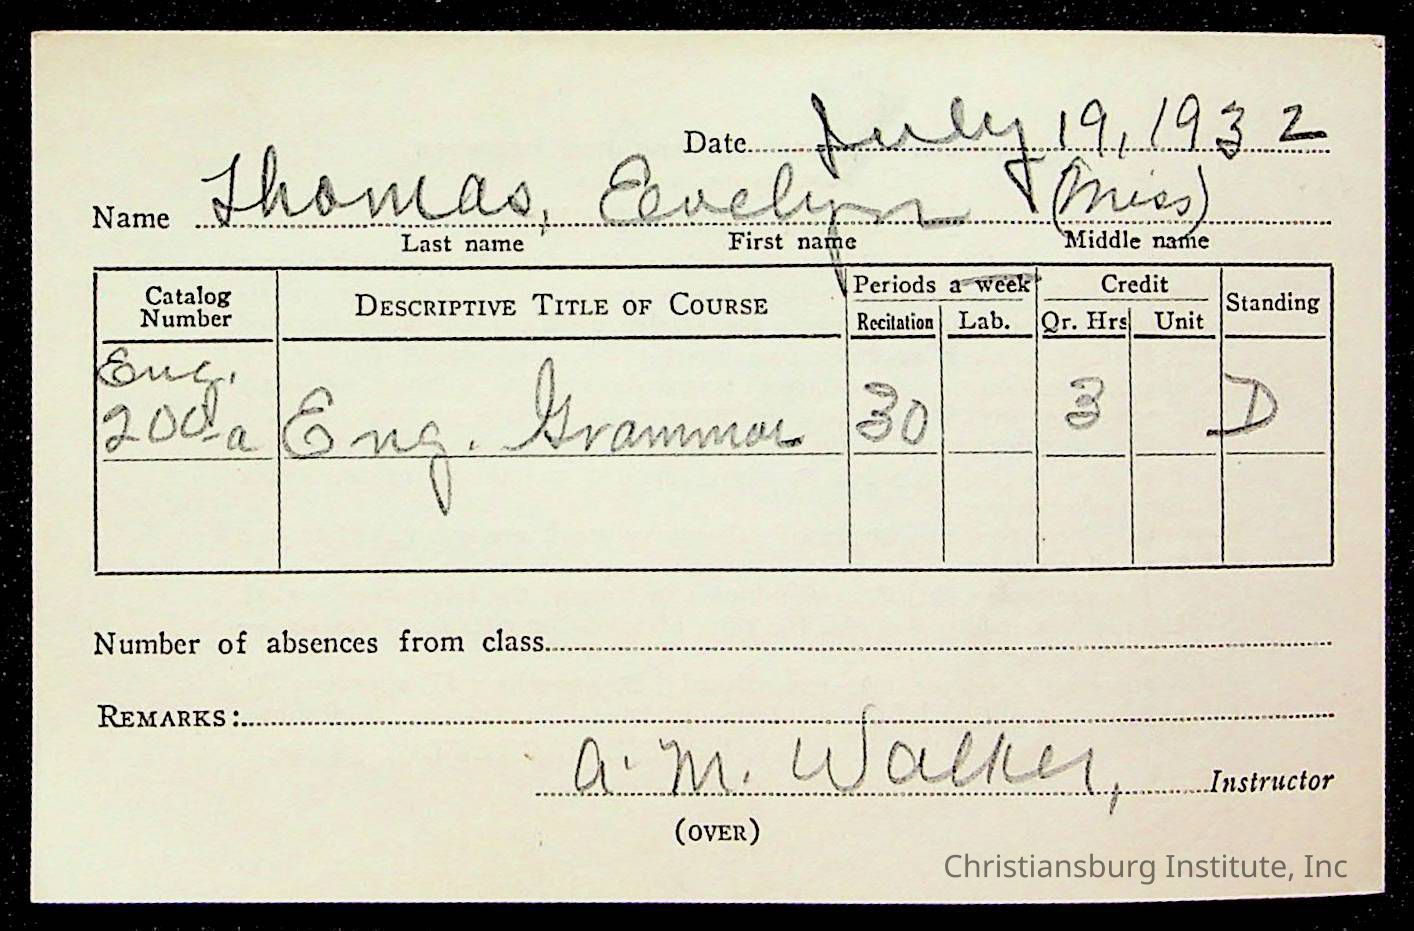 Date July 19, 1932
Name Thomas, Evelyn (Miss)
Last name First name Middle name
Catalog Number DESCRIPTIVE TITLE OF COURSE Periods a week Credit Standing
Recitation Lab. Qr. Hrs Unit
Eng. 200-a Eng. Grammar 30 3 D
Number of absences from class
REMARKS:
A. M. Walker, Instructor
(OVER)
Christiansburg Institute, Inc